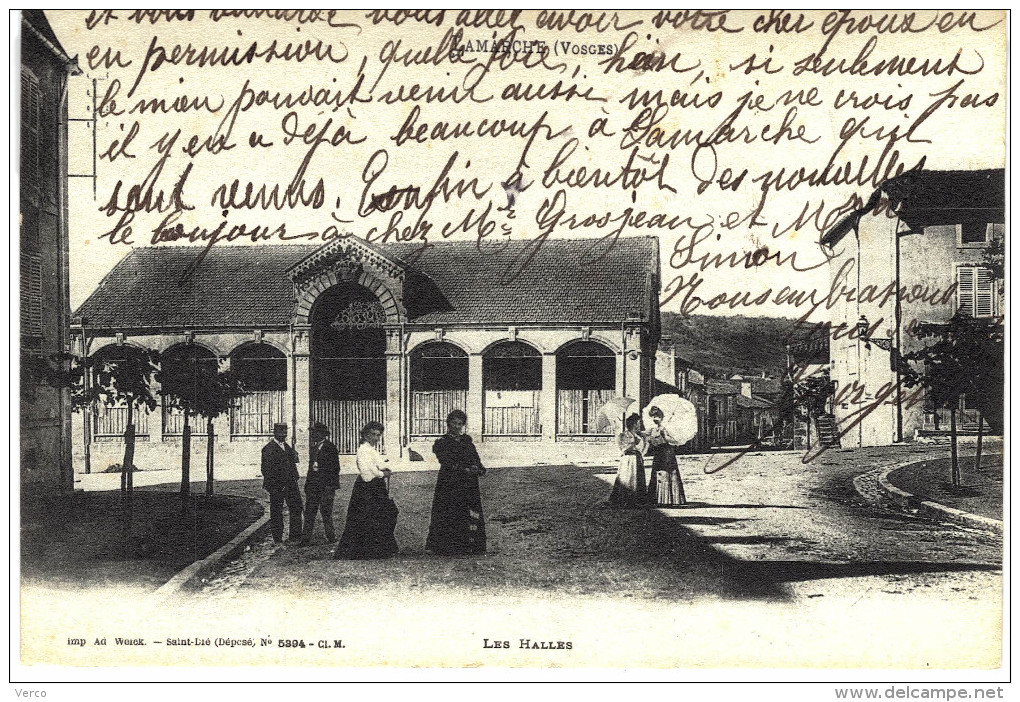 et vous
LAMARCHE (VOSGES)
en permission, quelle joie, hein, si seulement
le mien pouvait venir aussi mais je ne crois pas
il y en a déjà beaucoup à Lamarche qui
sont venus. Enfin à bientôt des nouvelles
le bonjour à chez Mr Grosjean et
Simon
Nous embrassons
Imp Ad Weick. — Saint-Dié (Déposé) No 5394 - Cl. M.
LES HALLES
Verco
www.delcampe.net